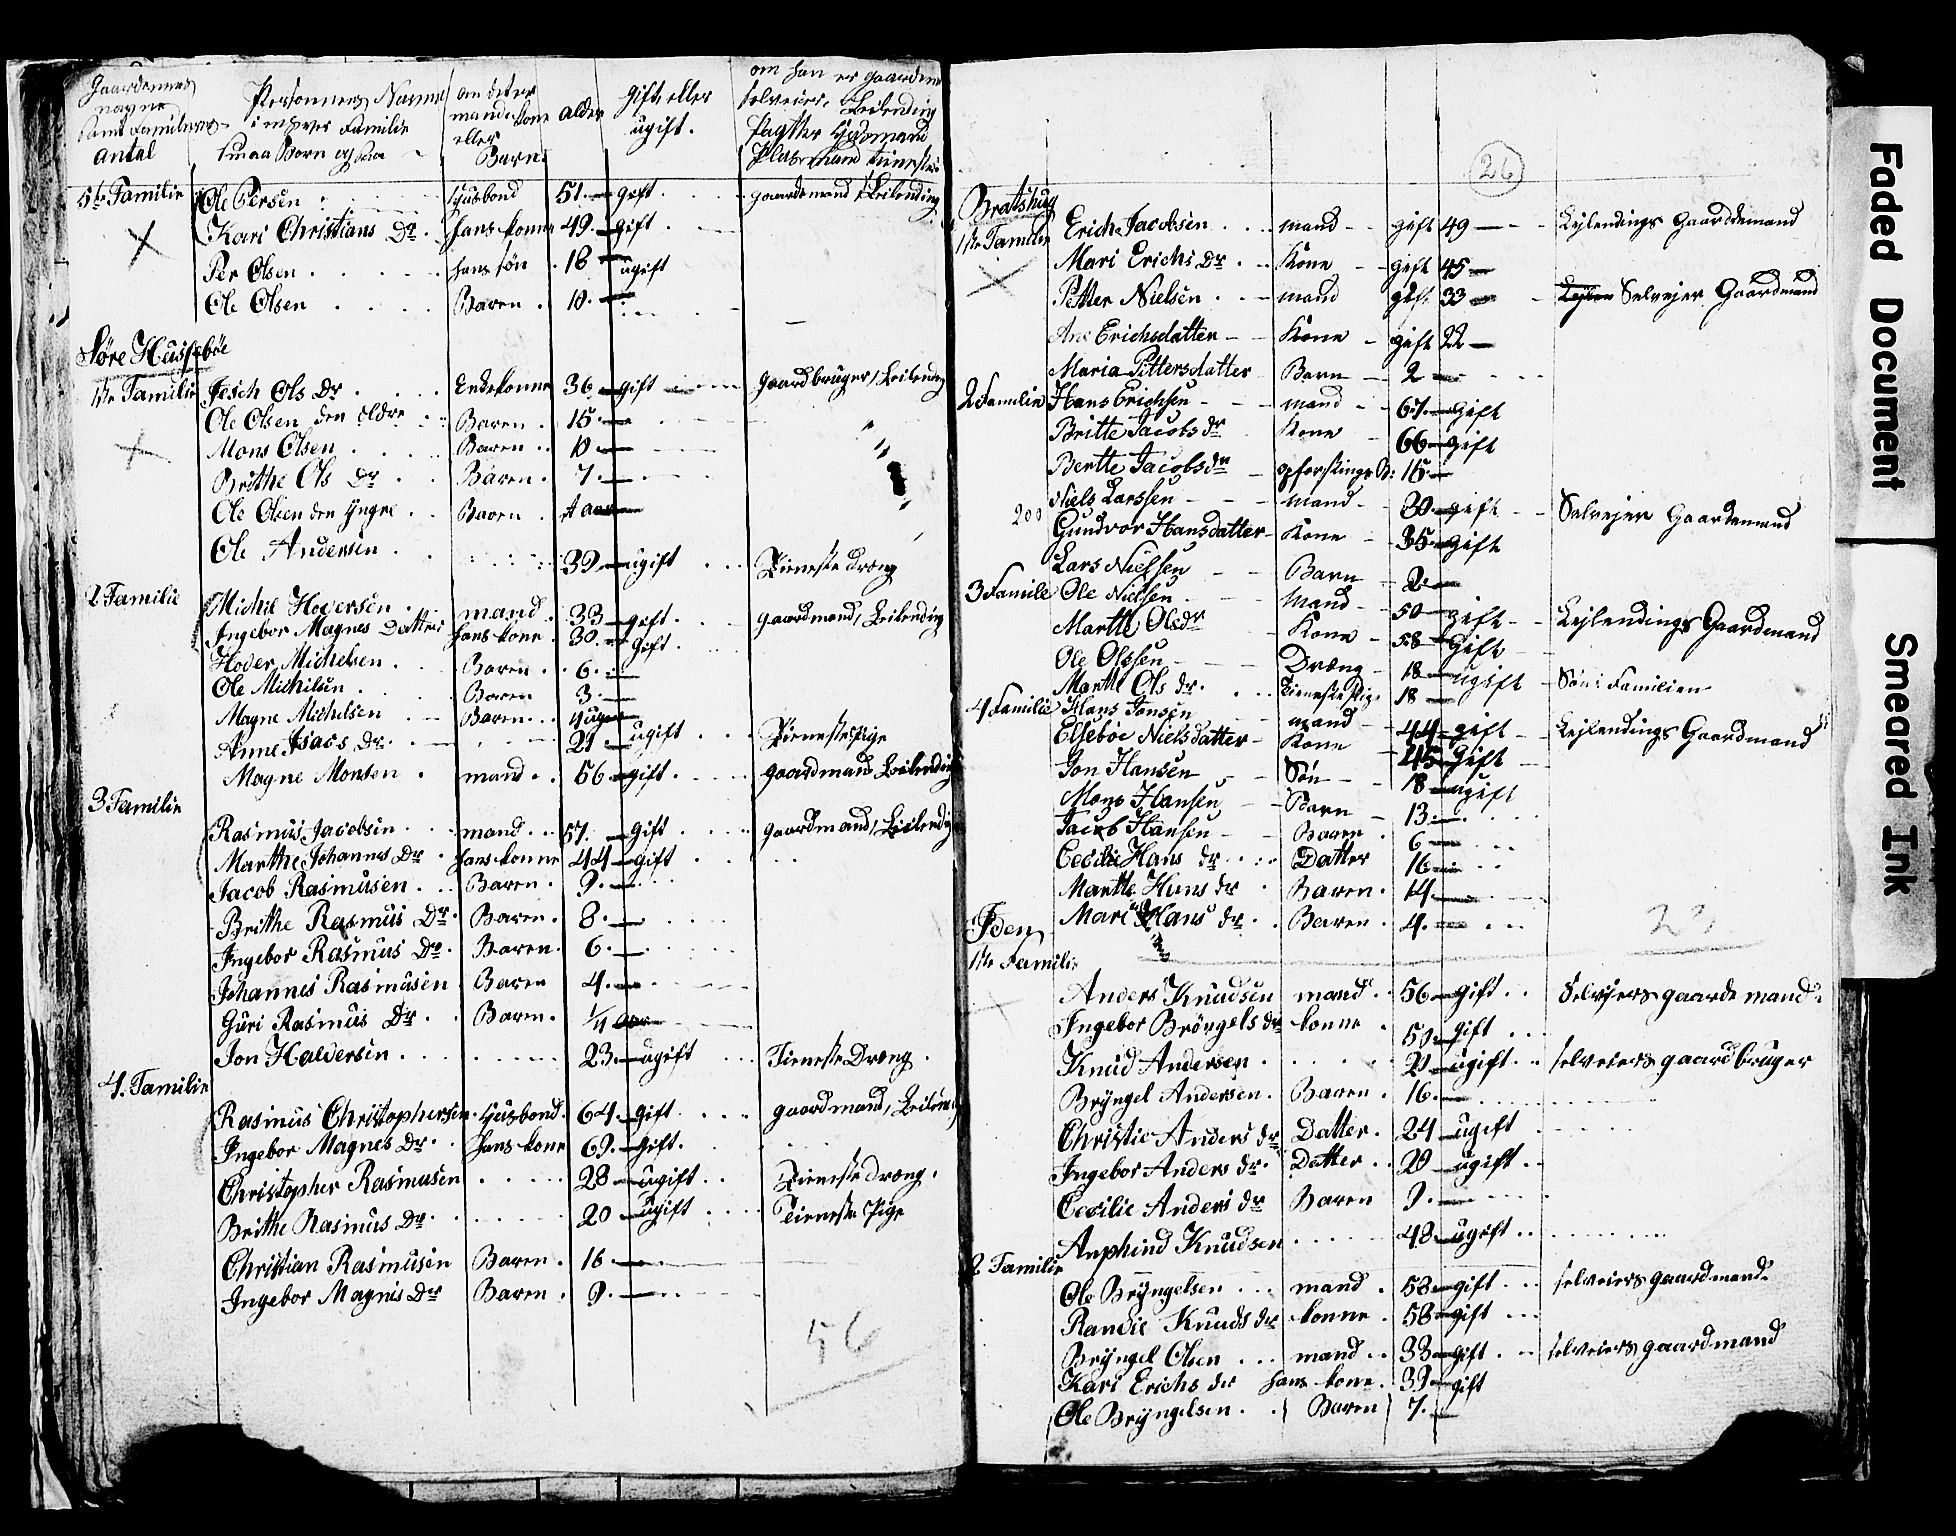 Gaardennes nagne samt Familiens antal | Personners Nagne i enhver Familie smaa Born og saa | om det er mand kone eller Barn | alder | Gift eller ugift. | om han er gaardm selveier, Leilending Pagtter Huusmand Pladsmand
5te Familie Ole Persen Husbond 51. gift. gaardemand Leilending
Kari Christians Dr. hans konne 49. gift.
Per Olsen hans søn 18 ugift
Ole Olsen Baren 10.
Søre Husebøe
1ste Familie Ols Dr Enkekonne 36 gift gaardbruger/ Leilending
Ole Olsen den eldre Baren 15
Mons Olsen Baren 10
Brithe Ols Dr Baren 7.
Ole Olsen den yngre Baren
Ole Andersen 39 ugift Tieneste Dreng
2 Familie Michil Hoversen mand. 33 gift. gaardmand, Leilending
Ingebor Magnes Datter hans kone 30. Gift.
Hoder Michelsen Baren 6.
Ole Michilsen Baren 3.
Magne Michelsen Baren
Anne Isacs Dr. 21 ugift Tienestepige
Magne Monsen mand 56 gift. gaardmand Leilending
3 Familie
Rasmus Jacobsen mand 57. Gift gaardmand, Leilending
Marthe Johannes Dr hans konne 44 gift
Jacob Rasmusen Baren. 9.
Brithe Rasmus Dr. Baren. 8.
Ingebor Rasmus Dr. Baren. 6.
Johannes Rasmusen Baren 4.
Guri Rasmus Dr. Baren. 1/4 aar
Jon Haldersen 23. ugift Tieneste Dreng.
4. Familie
Rasmus Christophersen Husbond. 64. gift. gaardmand, Leilend
Ingebor Magnes Dr. hans kone 69. gift.
Christopher Rasmusen 28 ugift Tieneste dreng.
Brithe Rasmus Dr. 20 ugift Tieneste Pige
Christian Rasmusen Baren. 16
Ingebor Magnis Dr Baren. 9.
56
26
Bratshug
1ste Familie Erich Jacobsen mand gift 49 Lejlendings Gaarddemand
Mari Erichs Dr. Kone gift 45
Petter Nielsen mand gift 33 Selvejer Gaardmand
Ane Erichsdatter Kone gift 22
Maria Pittersdatter Barn 2
2 Familie Hans Erichsen mand 67. gift
Britte Jacobs dr Kone 66 gift
Berte Jacobsdr opfostrings B: 15
200 Niels Larssen mand 30. gift Selvejer Gaardemand
Gundvor Hansdatter Kone 35 gift
Lars Nielsen Barn 2
3 Familie Ole Nielsen mand 50 gift Lejlendings Gaardmand
Marthe Olsdr Kone 58 gift
Ole Olssen Dræng 18 ugift Søn i Familien
Marthe Ols dr. Tienestepige 18
4 Familie Hans Jonsen mand 44 gift Lejlendings Gaardmand
Elsebøe Nielsdatter Kone 45 gift
Jon Hansen Søn 18 ugift
Mons Hansen Barn 13.
Jacob Hansen Baren 6
Cecilie Hans dr Datter 16
Marthe Hans dr Baren. 14.
Mari Hans dr. Baren. 4.
23
Iden
1ste Familie
Anders Knudsen mand 56 gift Selvejers gaarde mand
Ingebor Brøngels dr konne 50. gift
Knud Andersen 21 ugift selveiers gaardbruger
Bryngel Andersen. Baren 16.
Christie Anders dr Datter. 24 ugift
Ingebor Anders dr. Datter 20 ugift
Cecilie Anders dr Baren 9.
Anphind Knudsen 48. ugift
2 Familie
Ole Bryngelsen mand 58 gift selveiers gaardmand.
Randie Knuds dr konne 58 gift
Bryngel Olsen mand 33 gift. selveiers gaardmand
Kari Erichs dr hans kone. 39 gift
Ole Bryngelsen. Baren 7.
Faded Document
Smeared Ink